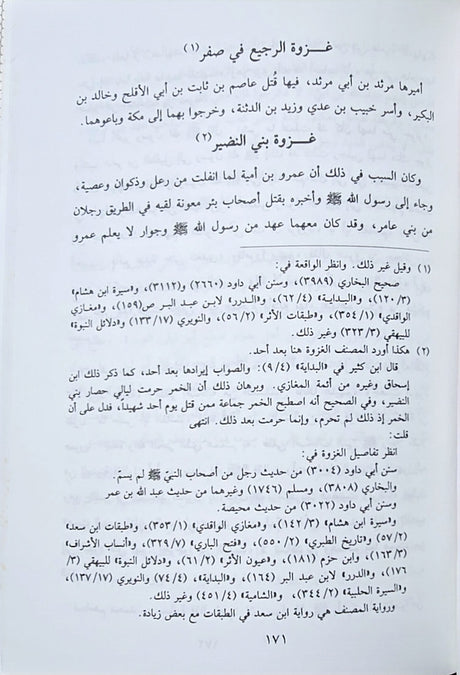 غـــزوة الرجيع في صفر (١)
أميرها مرثد بن أبي مرثد، فيها قُتل عاصم بن ثابت بن أبي الأفلح وخالد بن
البكير، وأسر خبيب بن عدي وزيد بن الدثنة، وخرجوا بهما إلى مكة وباعوهما.
غـــزوة بني النضير (٢)
وكان السبب في ذلك أن عمرو بن أمية لما انفلت من رعل وذكوان وعصية،
وجاء إلى رسول الله ﷺ وأخبره بقتل أصحاب بئر معونة لقيه في الطريق رجلان
من بني عامر، وقد كان معهما عهد من رسول الله ﷺ وجوار لا يعلم عمرو
(١) وقيل غير ذلك. وانظر الواقعة في:
صحيح البخاري (٣٩٨٩)، وسنن أبي داود (٢٦٦٠) و(٣١١٢)، و«سيرة ابن هشام»
(١٢٠/٣)، و«البداية» (٦٢/٤)، و«الدرر» لابن عبد البر ص(١٥٩)، و«مغازي
الواقدي» (٣٥٤/١)، و«طبقات الأثر» (٥٦/٢)، والنويري (١٣٣/١٧) و«دلائل النبوة»
للبيهقي (٣٢٣/٣) وغير ذلك.
(٢) هكذا أورد المصنف الغزوة هنا بعد أحد.
قال ابن كثير في «البداية» (٩/٤): والصواب إيرادها بعد أحد، كما ذكر ذلك ابن
إسحاق وغيره من أئمة المغازي. وبرهان ذلك أن الخمر حرمت ليالي حصار بني
النضير، وفي الصحيح أنه اصطبح الخمر جماعة ممن قتل يوم أحد شهيداً، فدل على أن
الخمر إذ ذلك لم تحرم، وإنما حرمت بعد ذلك. انتهى
قلت:
انظر تفاصيل الغزوة في:
سنن أبي داود (٣٠٠٤) من حديث رجل من أصحاب النبيّ ﷺ لم يسمّ.
والبخاري (٣٨٠٨)، ومسلم (١٧٤٦) وغيرهما من حديث عبد الله بن عمر
وسنن أبي داود (٣٠٢٢) من حديث محيصة.
و«سيرة ابن هشام» (١٤٢/٣)، و«مغازي الواقدي» (٣٥٣/١)، و«طبقات ابن سعد»
(٥٧/٢) و«تاريخ الطبري» (٥٥٠/٢)، و«فتح الباري» (٣٢٩/٧)، و«أنساب الأشراف»
(١٦٣/٣)، وابن حزم (١٨١)، و«عيون الأثر» (٦١/٢)، و«دلائل النبوة» للبيهقي (٣/
١٧٦)، و«الدرر» لابن عبد البر (١٦٤)، و«البداية» (٧٤/٤) والنويري (١٣٧/١٧)،
و«السيرة الحلبية» (٣٤٤/٢)، و«الشامية» (٤٥١/٤) وغير ذلك.
ورواية المصنف هي رواية ابن سعد في الطبقات مع بعض زيادة.
١٧١